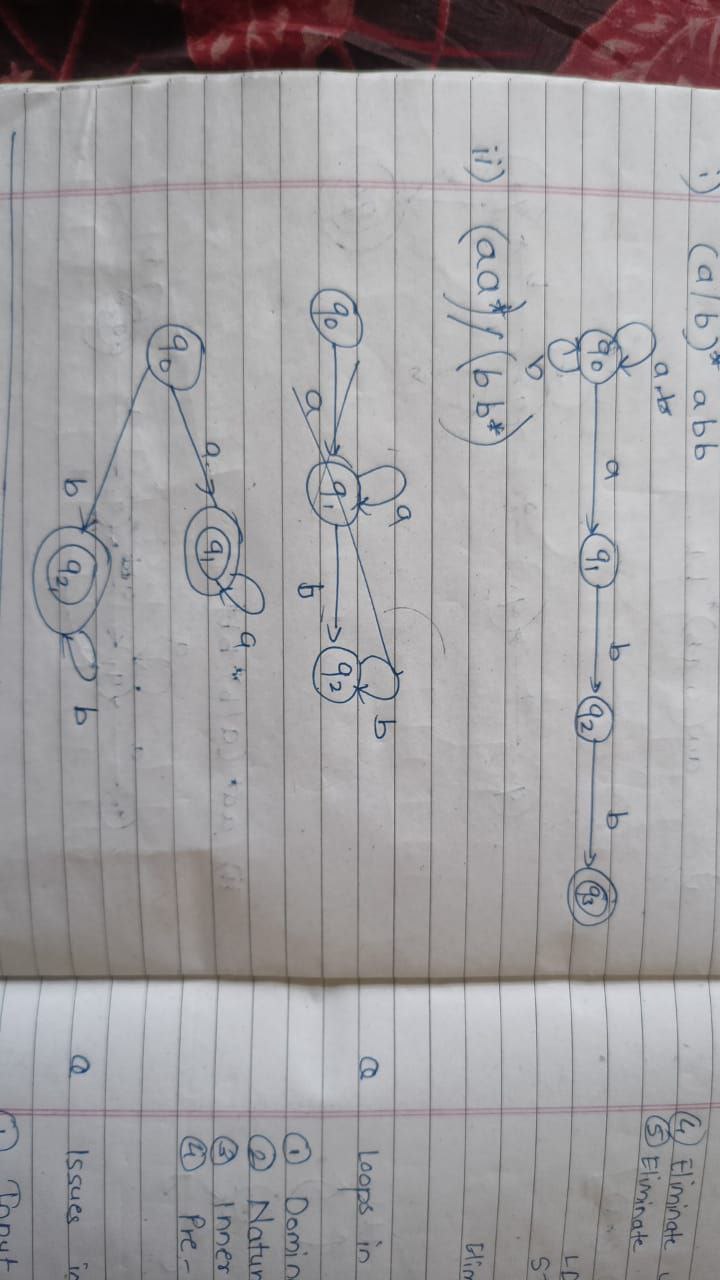 i) (a/b)* abb
a,b
b
q0 a q1 b q2 b q3
ii) (aa*)/(bb*)
q0 a q1 a b q2 b
q0 a q1 a
b q2 b
④ Eliminate
⑤ Eliminate
Q Loops in
① Domin
② Natur
③ Inner
④ Pre-
Q Issues in
① Input